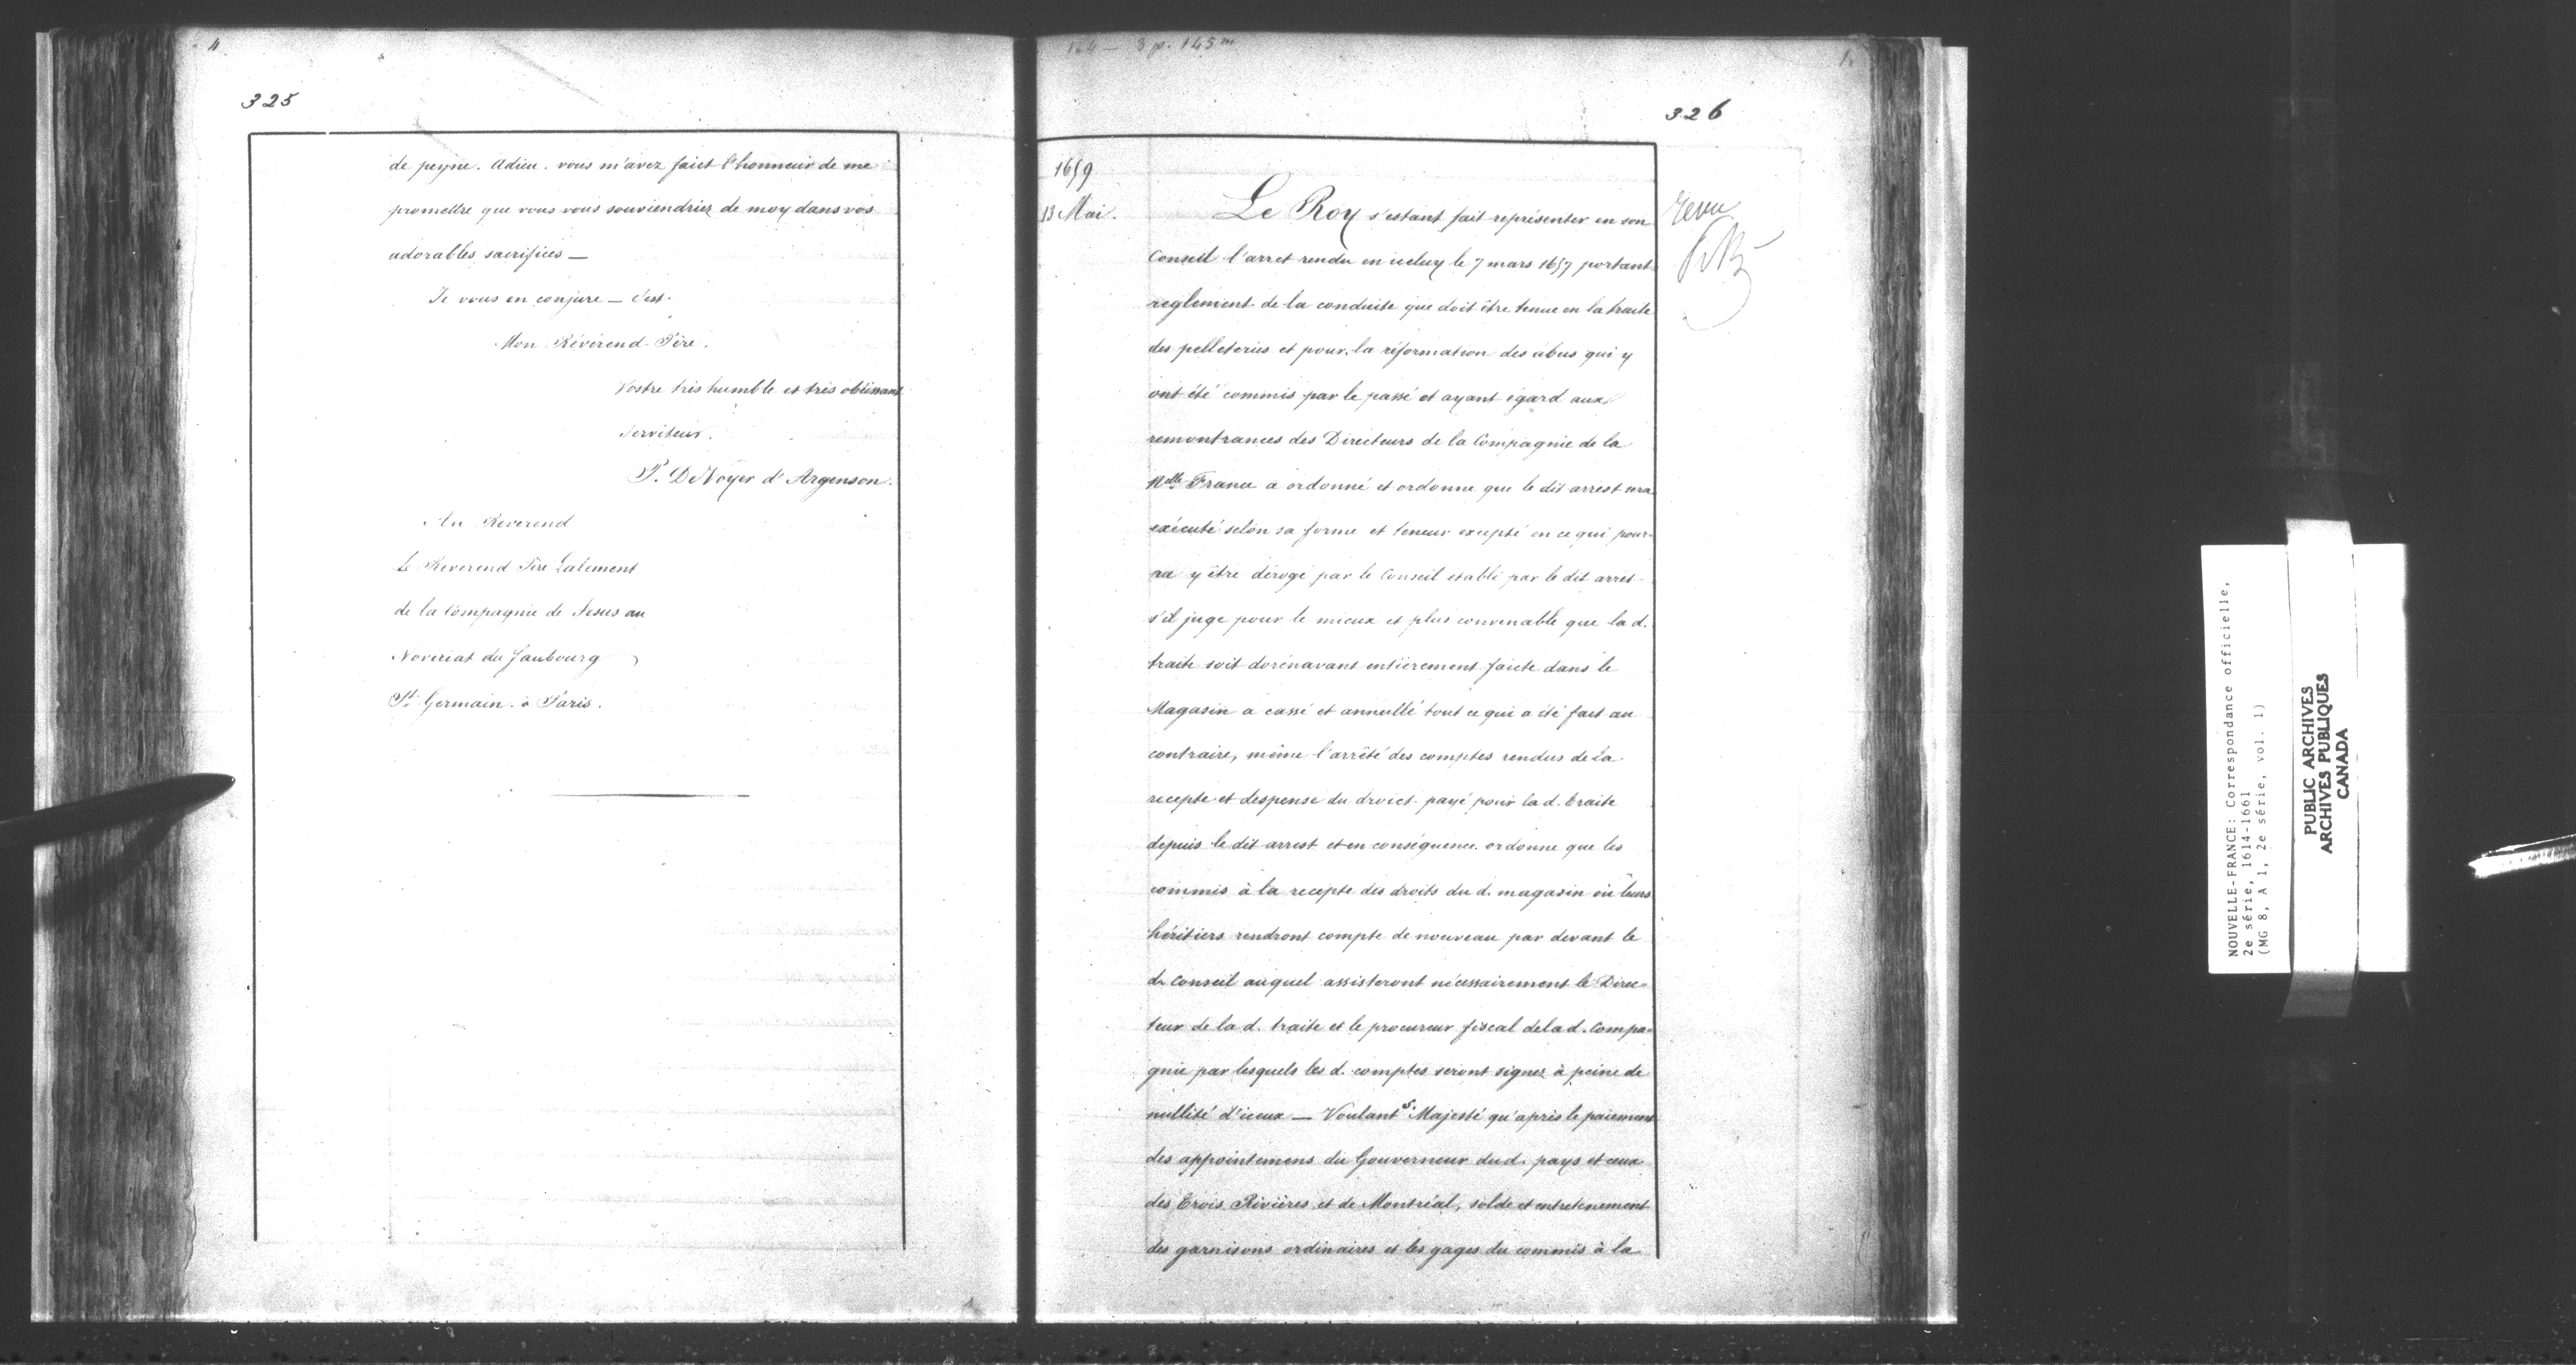 4
325
de peyne. Adieu. vous m'avez faict l'honneur de me
promettre que vous vous souviendriez de moy dans vos
adorables sacrifices —
Je vous en conjure — C'est.
Mon Révérend Père.
Vostre très humble et très obéissant
Serviteur.
P. De Voyer d'Argenson.
Au Reverend
Le Reverend Père Lalement
de la Compagnie de Jesus au
Noviciat du faubourg
St Germain. à Paris.
3 p. 145
1.
326
1659
13 Mai.
Le Roy s'estant fait représenter en son
Conseil l'arret rendu en iceluy le 7 mars 1657 portant
reglement de la conduite que doit être tenue en la traite
des pelleteries et pour la réformation des abus qui y
ont été commis par le passé et ayant égard aux
remontrances des Directeurs de la Compagnie de la
Nlle France a ordonné et ordonne que le dit arrest sera
exécuté selon sa forme et teneur excepté en ce qui pour-
ra y être dérogé par le Conseil establi par le dit arrêt
s'il juge pour le mieux et plus convenable que la d.
traite soit dorénavant entièrement faicte dans le
Magasin a cassé et annullé tout ce qui a été fait au
contraire, même l'arrêté des comptes rendus de la
recepte et despense du droict payé pour la d. traite
depuis le dit arrest et en conséquence ordonne que les
commis à la recepte des droits du d. magasin ou leurs
héritiers rendront compte de nouveau par devant le
d. Conseil auquel assisteront nécessairement le Direc-
teur de la d. traite et le procureur fiscal de la d. Compa-
gnie par lesquels les d. comptes seront signez à peine de
nullité d'iceux — Voulant S. Majesté qu'après le paiement
des appointemens du Gouverneur du d. pays et ceux
des Trois Rivières et de Montréal, solde et entretenement
des garnisons ordinaires et les gages du commis à la
revu
NOUVELLE-FRANCE: Correspondance officielle,
2e série, 1614-1661
(MG 8, A 1, 2e série, vol. 1)
PUBLIC ARCHIVES
ARCHIVES PUBLIQUES
CANADA